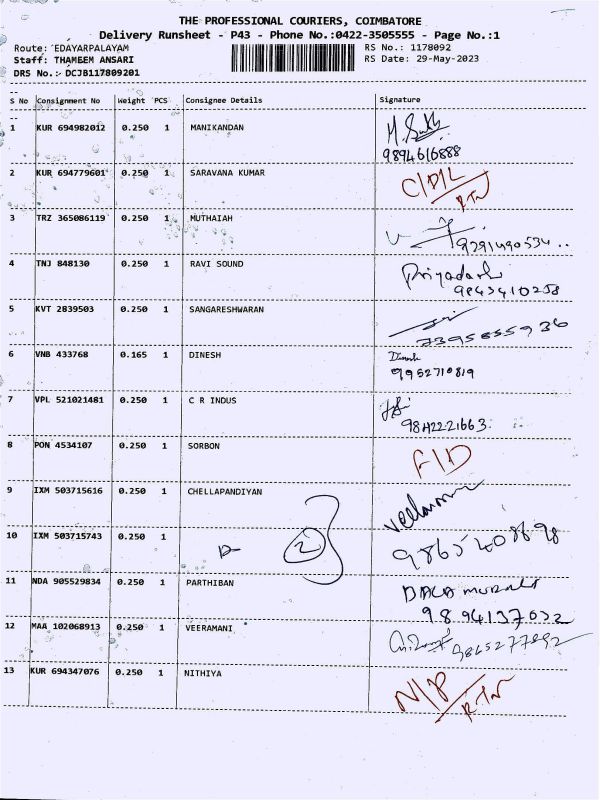 THE PROFESSIONAL COURIERS, COIMBATORE
Delivery Runsheet - P43 - Phone No.:0422-3505555 - Page No.:1
Route: EDAYARPALAYAM RS No.: 1178092
Staff: THAMEEM ANSARI RS Date: 29-May-2023
DRS No.: DCJB117809201
S No Consignment No Weight PCS Consignee Details Signature
1 KUR 694982012 0.250 1 MANIKANDAN
9894616888
2 KUR 694779601 0.250 1 SARAVANA KUMAR C/D/L
RTN
3 TRZ 365086119 0.250 1 MUTHAIAH
9291490534
4 TNJ 848130 0.250 1 RAVI SOUND
9843410258
5 KVT 2839503 0.250 1 SANGARESHWARAN
6 VNB 433768 0.165 1 DINESH Dinesh
9952710819
7 VPL 521021481 0.250 1 C R INDUS
8 PON 4534107 0.250 1 SORBON F/D
9 IXM 503715616 0.250 1 CHELLAPANDIYAN
10 IXM 503715743 0.250 1 2
9865408898
11 NDA 905529834 0.250 1 PARTHIBAN
9894137032
12 MAA 102068913 0.250 1 VEERAMANI
9865277892
13 KUR 694347076 0.250 1 NITHIYA N/P
RTN